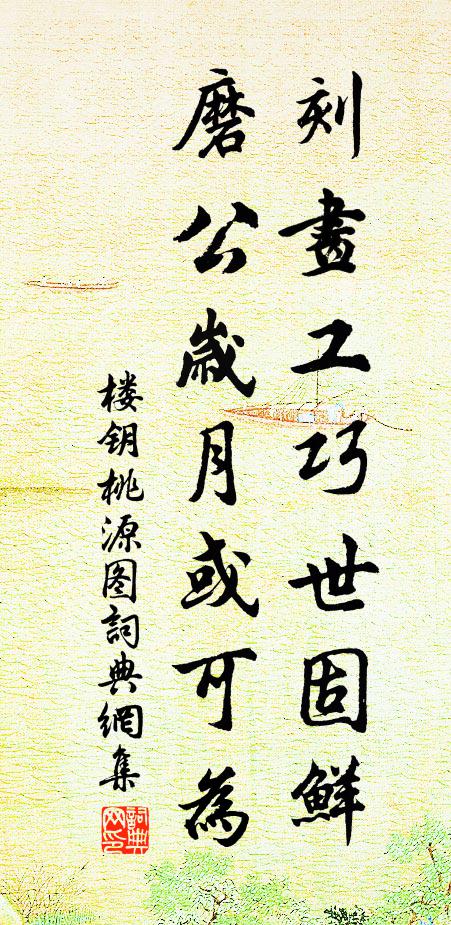 刻畫工巧世固鮮
磨公歲月或可為
楼钥桃源图詞典網集
詞典
网印